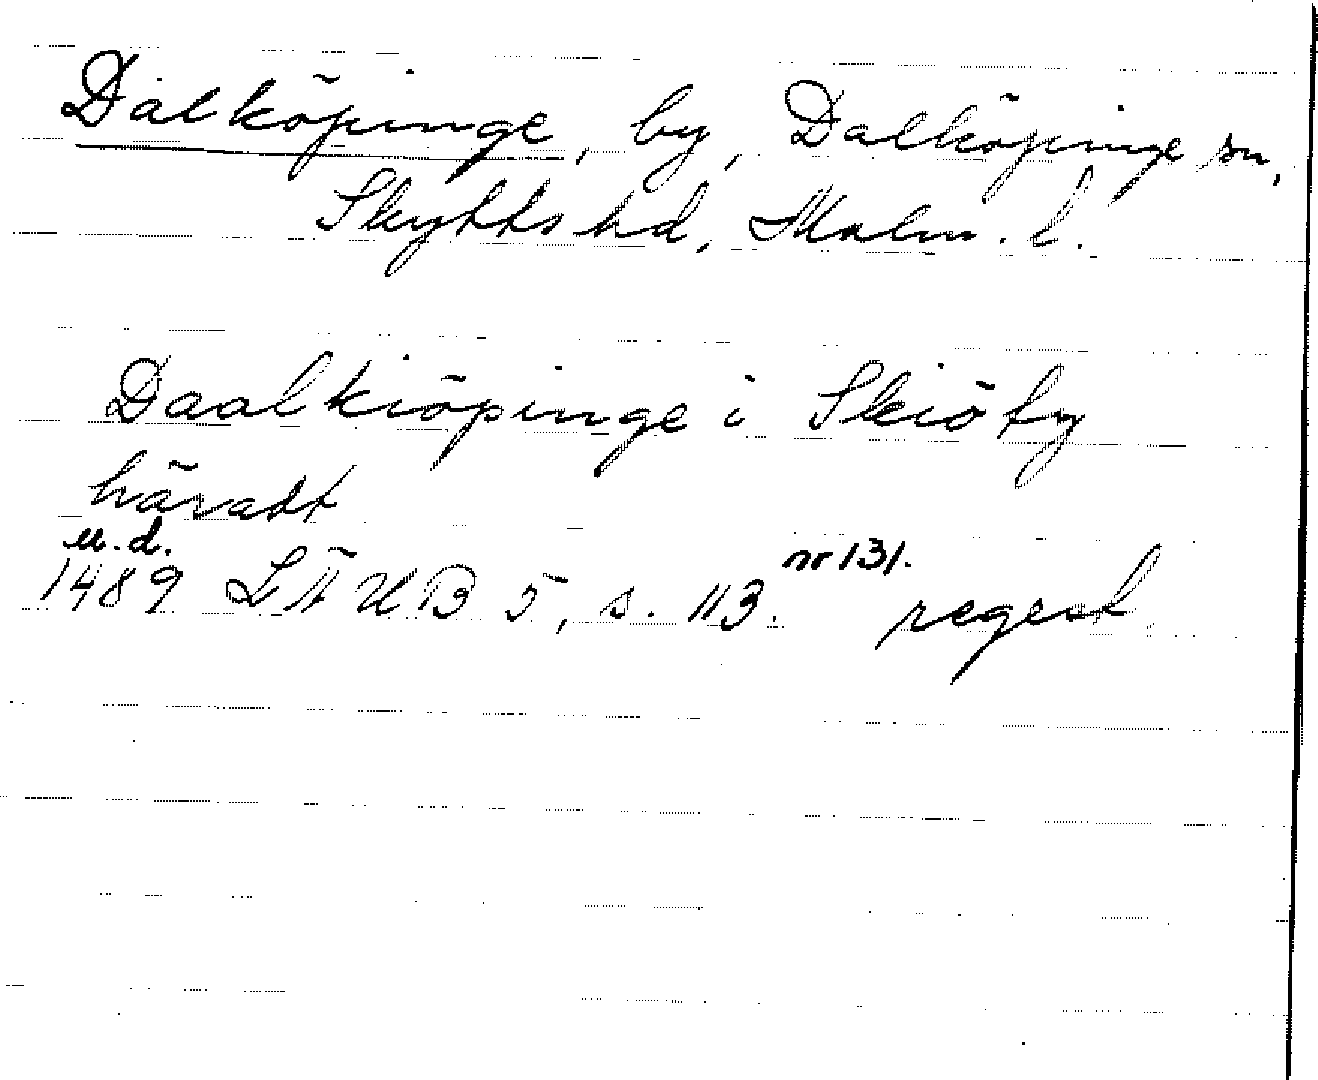 Dalköpinge, by, Dalköpinge sn,
Skytts hd, Malm. l.
Daalkiöpinge i Skiöty
häradt
u.d.
1489 LÄUB 5, s. 113. nr 131. regest